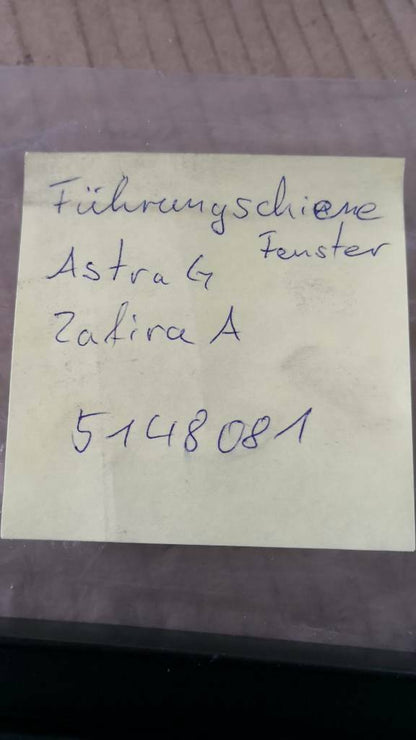 Führungschiene
Fenster
Astra G
Zafira A
5148081